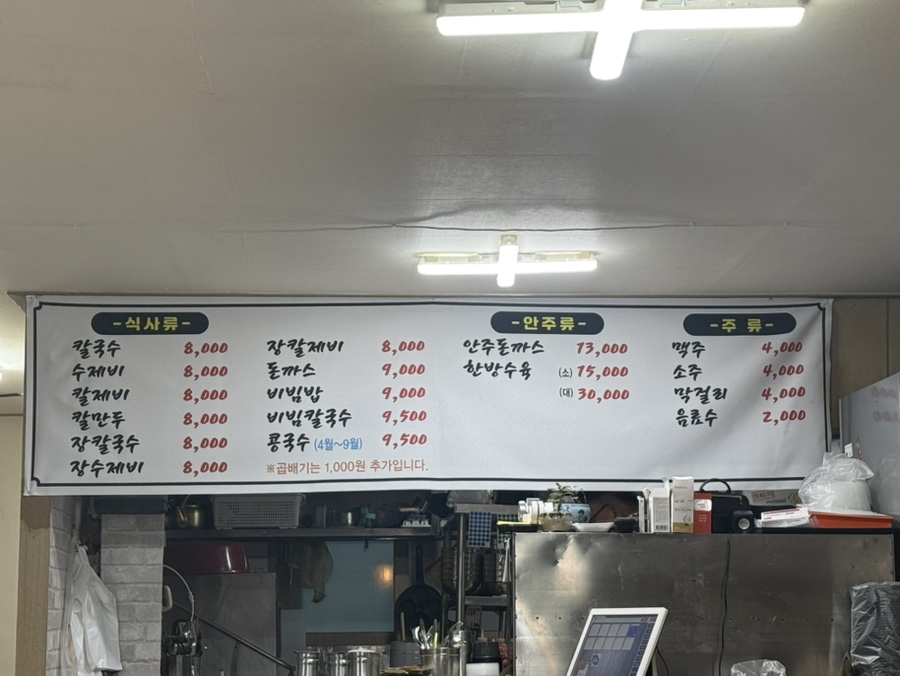 -식사류-
칼국수 8,000
수제비 8,000
칼제비 8,000
칼만두 8,000
장칼국수 8,000
장수제비 8,000
장칼제비 8,000
돈까스 9,000
비빔밥 9,000
비빔칼국수 9,500
콩국수 (4월~9월) 9,500
※곱배기는 1,000원 추가입니다.
-안주류-
안주돈까스 13,000
한방수육 (소) 15,000
(대) 30,000
-주류-
맥주 4,000
소주 4,000
막걸리 4,000
음료수 2,000